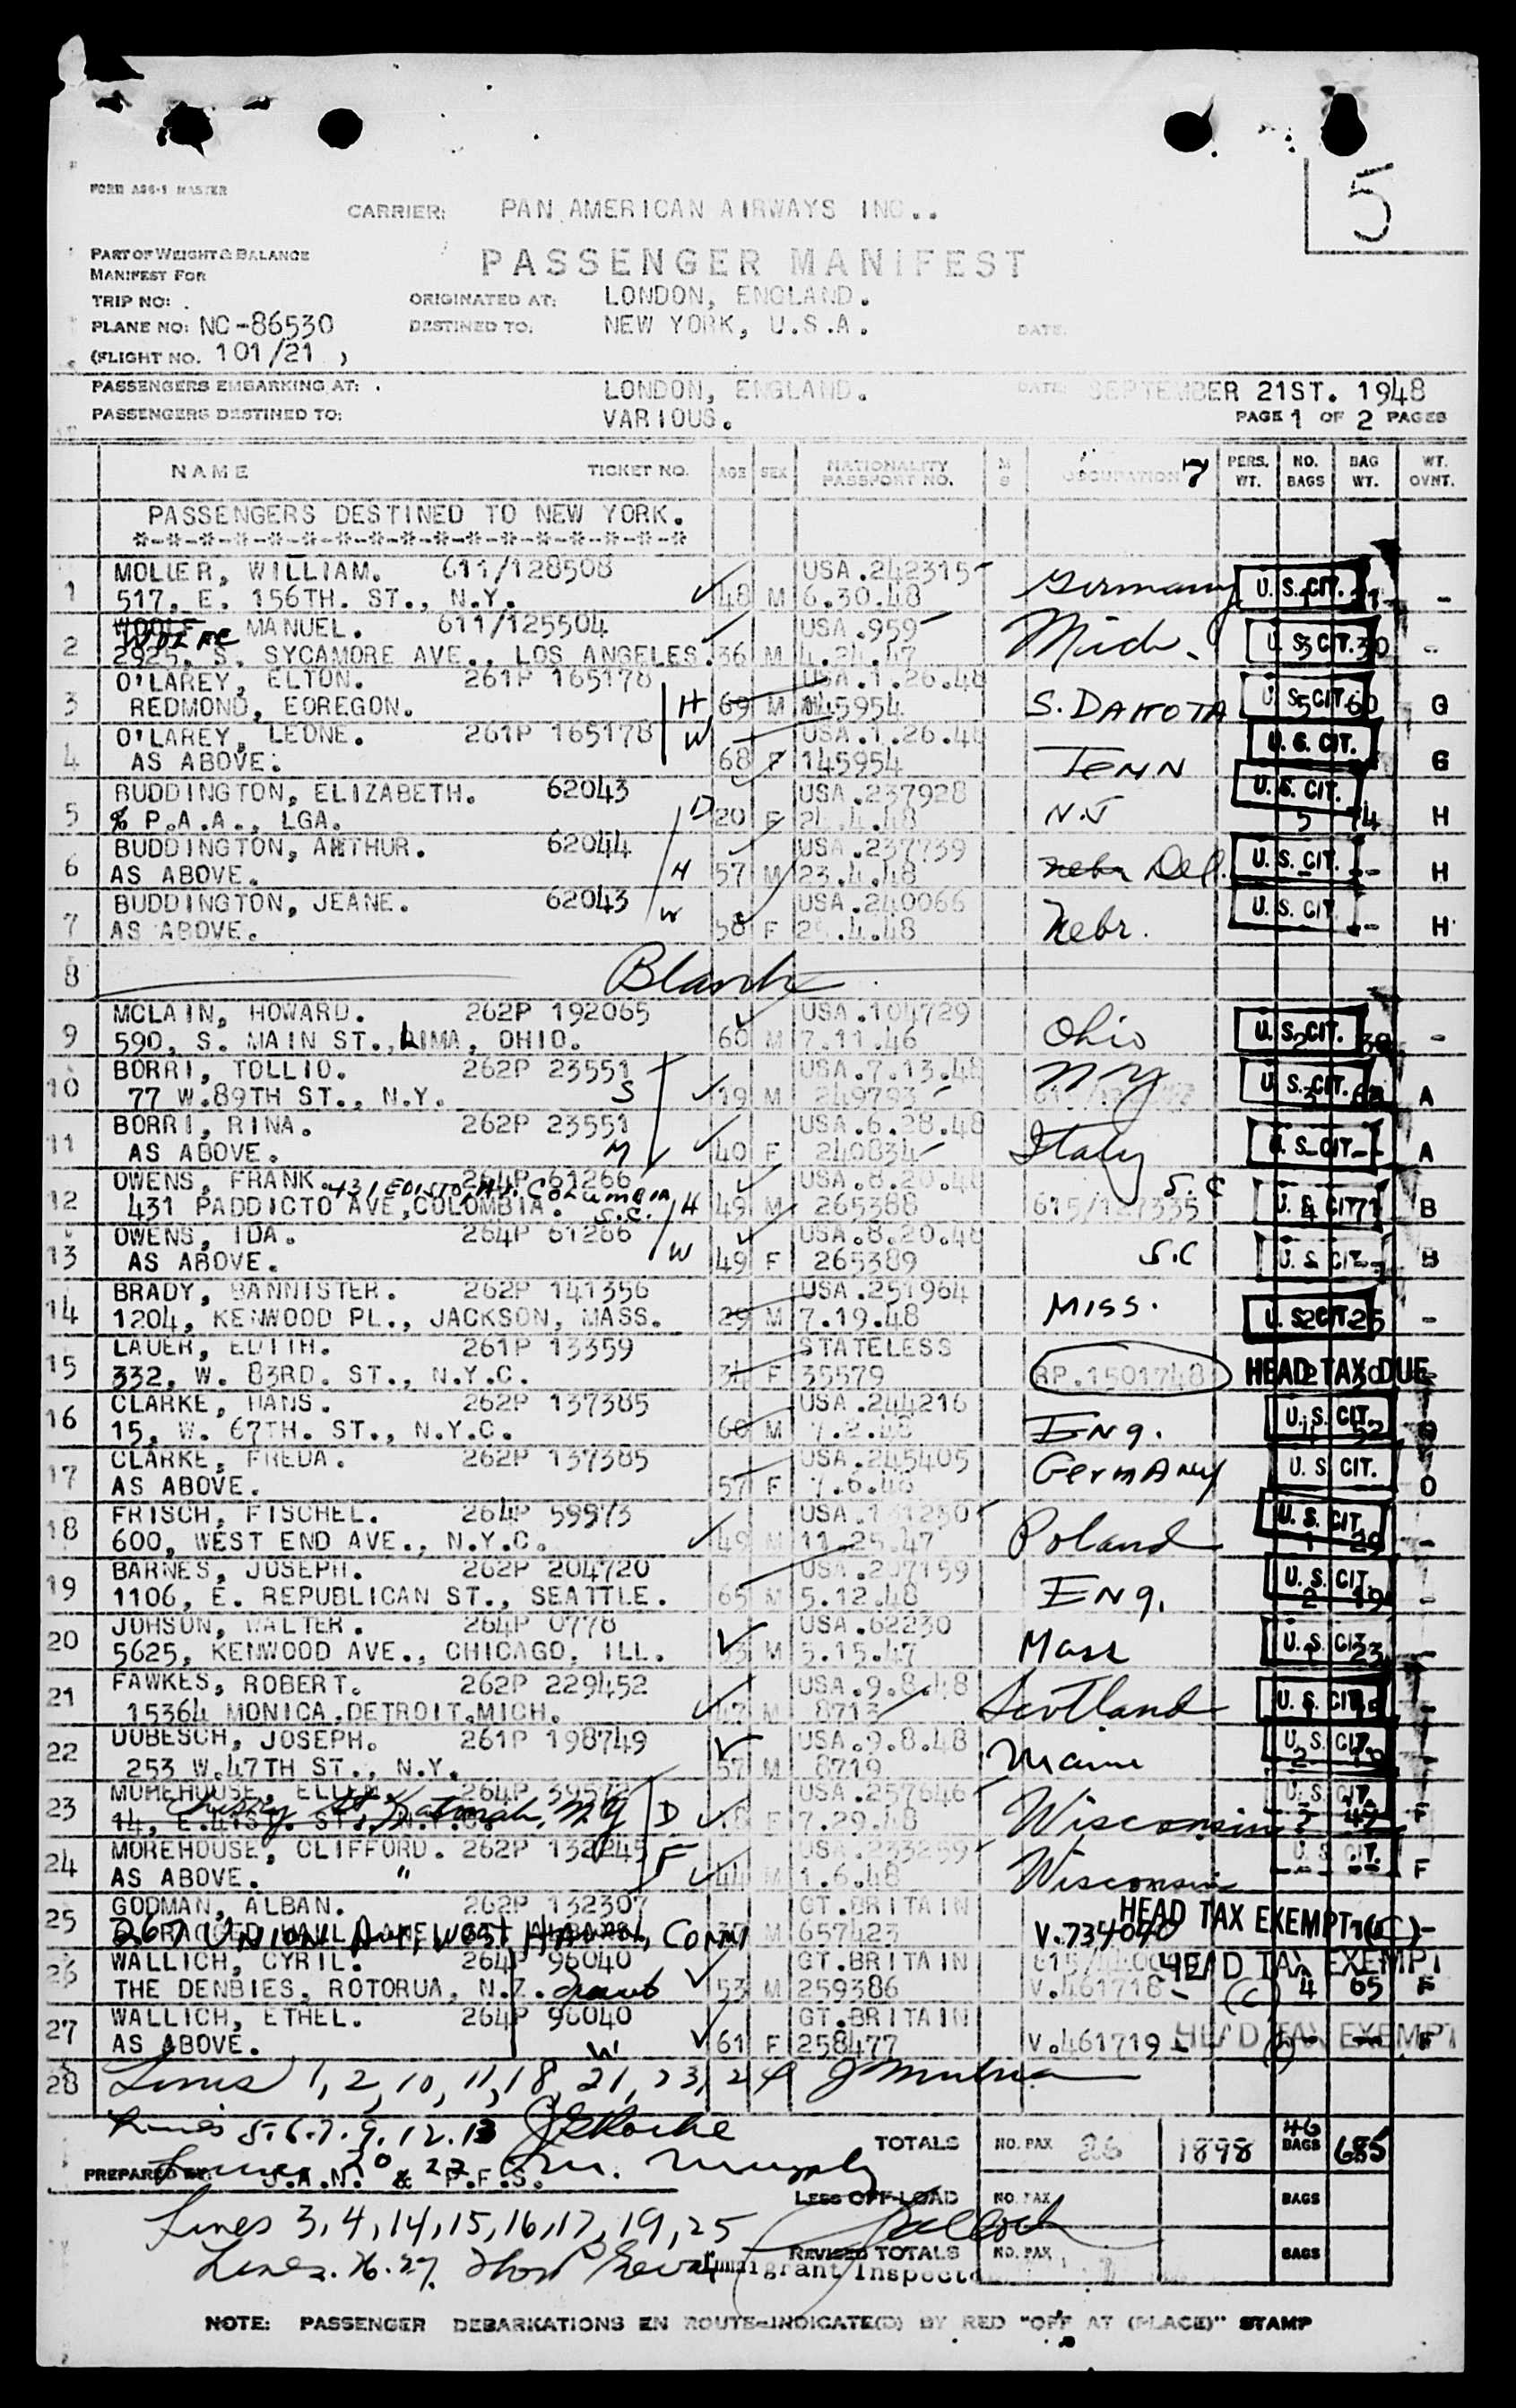 5
FORM AS6-1 MASTER
CARRIER: PAN AMERICAN AIRWAYS INC..
PART OF WEIGHT & BALANCE
MANIFEST FOR
PASSENGER MANIFEST
TRIP NO: . ORIGINATED AT: LONDON, ENGLAND.
PLANE NO: NC-86530 DESTINED TO. NEW YORK, U.S.A. DATE:
(FLIGHT NO. 101/21 )
PASSENGERS EMBARKING AT: . LONDON, ENGLAND. DATE: SEPTEMBER 21ST. 1948
PASSENGERS DESTINED TO: VARIOUS. PAGE 1 OF 2 PAGES
NAME TICKET NO. AGE SEX NATIONALITY PASSPORT NO. M S OCCUPATION 7 PERS. WT. NO. BAGS BAG WT. WT. OVNT.
PASSENGERS DESTINED TO NEW YORK.
*-*-*-*-*-*-*-*-*-*-*-*-*-*-*-*-*
1 MOLLER, WILLIAM. 611/128508 USA.242315
517, E. 156TH. ST., N.Y. 48 M 6.30.48 Germany U.S. CIT. -
2 MANUEL. 611/125504 USA.959
2925, S. SYCAMORE AVE., LOS ANGELES. 36 M 4.24.47 Mich. U.S. CIT. 3 30 -
3 O'LAREY, ELTON. 261P 165178 USA.1.26.48
REDMOND, EOREGON. H 69 M 145954 S. DAKOTA U.S. CIT. 5 60 G
4 O'LAREY, LEONE. 261P 165178 USA.1.26.48
AS ABOVE. W 68 F 145954 TENN U.S. CIT. G
5 BUDDINGTON, ELIZABETH. 62043 USA.237928
% P.A.A., LGA. D 20 F .4.48 N.J U.S. CIT. 5 74 H
6 BUDDINGTON, ARTHUR. 62044 USA.237739
AS ABOVE. H 57 M 23.4.48 Nebr Del. U.S. CIT. - -- H
7 BUDDINGTON, JEANE. 62043 USA.240066
AS ABOVE. W 50 F .4.48 Nebr. U.S. CIT. -- H
8 Blank
9 MCLAIN, HOWARD. 262P 192065 USA.104729
590, S. MAIN ST., LIMA, OHIO. 60 M 7.11.46 Ohio U.S. CIT. 2 -
10 BORRI, TOLLIO. 262P 23551 USA.7.13.48
77 W.89TH ST., N.Y. S 19 M 249793 NY U.S. CIT. A
11 BORRI, RINA. 262P 23551 USA.6.28.48
AS ABOVE. M 40 F 240834 Italy U.S. CIT. -- A
12 OWENS, FRANK. 264P 61266 USA.8.20.48
431 EDISTO AV. COLUMBIA S.C.
431 PADDICTO AVE, COLOMBIA. H 49 M 265388 615/127335 S.C U.S. CIT. 4 71 B
13 OWENS, IDA. 264P 61266 USA.8.20.48
AS ABOVE. W 49 F 265389 S.C U.S. CIT. -- B
14 BRADY, BANNISTER. 262P 141356 USA.251964
1204, KENWOOD PL., JACKSON, MASS. 29 M 7.19.48 MISS. U.S. CIT. 2 25 -
15 LAUER, EDITH. 261P 13359 STATELESS
332, W. 83RD. ST., N.Y.C. 34 F 35579 RP.1501748 HEAD TAX DUE
16 CLARKE, HANS. 262P 137385 USA.244216
15, W. 67TH. ST., N.Y.C. 60 M 7.2.48 ENG. U.S. CIT.
17 CLARKE, FREDA. 262P 137385 USA.245405
AS ABOVE. 57 F 7.6.48 GERMANY U.S. CIT. D
18 FRISCH, FISCHEL. 264P 59973
600, WEST END AVE., N.Y.C. 49 M 11.25.47 Poland U.S. CIT. 1 29 -
19 BARNES, JOSEPH. 262P 204720 USA.207159
1106, E. REPUBLICAN ST., SEATTLE. 65 M 5.12.48 ENG. U.S. CIT. 2 19 -
20 JOHSON, WALTER. 264P 0778 USA.62230
5625, KENWOOD AVE., CHICAGO, ILL. 53 M 3.15.47 Mass U.S. CIT. 23 -
21 FAWKES, ROBERT. 262P 229452 USA.9.8.48
15364 MONICA.DETROIT.MICH. 47 M 8713 Scotland U.S. CIT. -
22 DUBESCH, JOSEPH. 261P 198749 USA.9.8.48
253 W.47TH ST., N.Y. 57 M 8719 Maine U.S. CIT. -
23 MOREHOUSE, ELLEN. 264P 39572 USA.257646
Cherry St. Katonah, N.Y D F 7.29.48 Wisconsin U.S. CIT. 47 F
24 MOREHOUSE, CLIFFORD. 262P 132245 USA.233259
AS ABOVE. " F 44 M 1.6.48 Wisconsin U.S. CIT. -- F
25 GODMAN, ALBAN. 262P 132307 GT.BRITAIN
267 UNION AVE, WEST HAVEN, CONN M 657423 V.734090 HEAD TAX EXEMPT (C) -
26 WALLICH, CYRIL. 264P 96040 GT.BRITAIN
THE DENBIES, ROTORUA, N.Z. 53 M 259386 V.461718 HEAD TAX EXEMPT (C) 4 65 F
27 WALLICH, ETHEL. 264P 96040 GT.BRITAIN
AS ABOVE. W 61 F 258477 V.461719 HEAD TAX EXEMPT F
28 Lines 1, 2, 10, 11, 18, 21, 23, 24
Lines 5.6.7.9.12.13
TOTALS NO. PAX 26 1898 46 BAGS 685
Lines 20 22 M. Murphy
PREPARED BY: J.A.N. & P.F.S.
LESS OFF-LOAD NO. PAX BAGS
Lines 3, 4, 14, 15, 16, 17, 19, 25
Lines. 26.27.
REVISED TOTALS NO. PAX BAGS
Immigrant Inspector
NOTE: PASSENGER DEBARKATIONS EN ROUTE-INDICATE(D) BY RED "OFF AT (PLACE)" STAMP